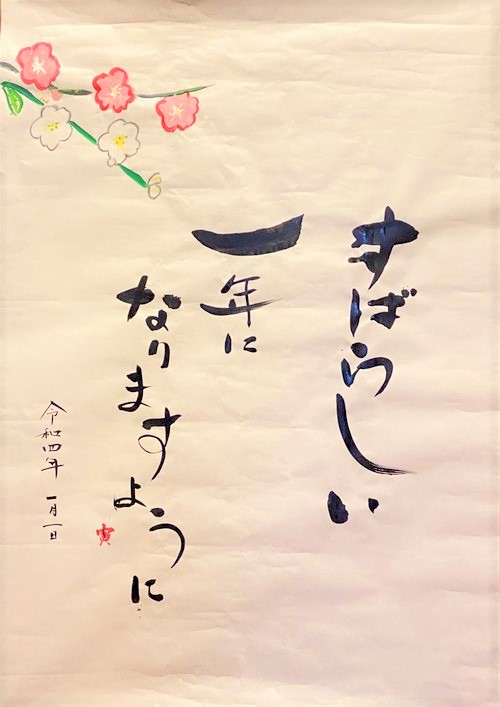 すばらしい
一年に
なりますように
令和四年 一月一日
寅